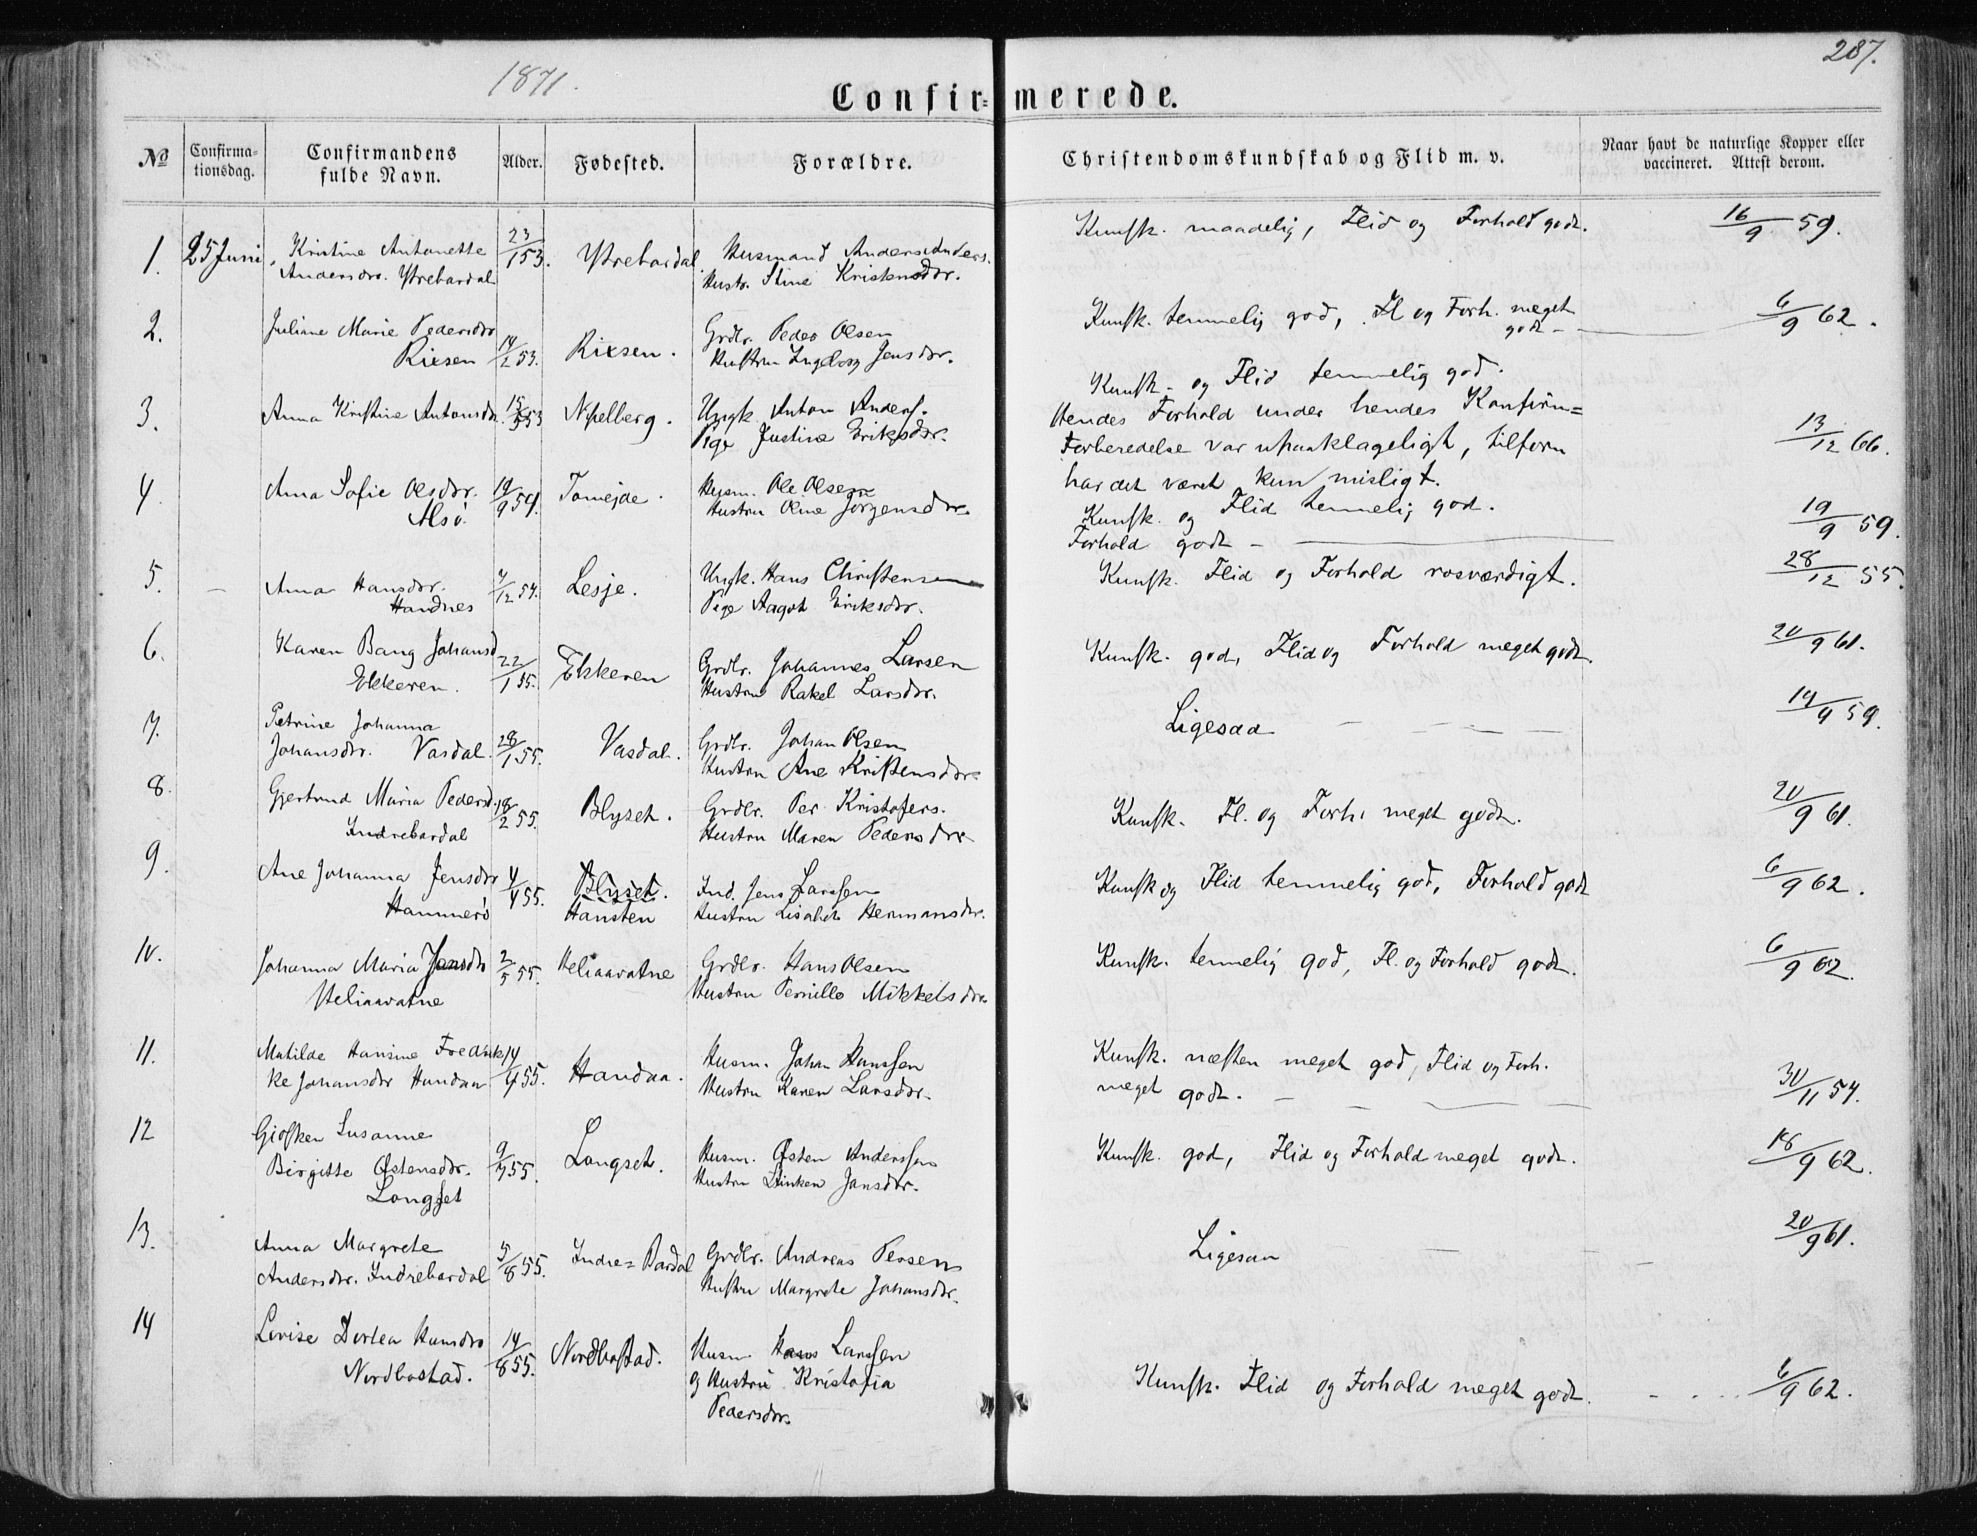 1871.
287.
Confirmerede.
№
Confirmationsdag.
Confirmandens fulde Navn.
Alder.
Fødested.
Forældre.
Christendomskundskab og Flid m. v.
Naar havt de naturlige Kopper eller vaccineret. Attest derom.
1. 25 Juni. Kristine Antonette 23/1 53. Ytrebardal. Husmand Anders Anders. Kunsk. maadelig, Flid og Forhold godt. 16/9 59.
Andersdr. Ytrebardal Hustr. Stine Kristensdr.
2. Juliane Marie Pedersdr Grdlr. Peder Olsen Kunsk. temmelig god, Fl og Forh. meget 6/9 62.
Rixsen 14/2 53. Rixsen. Hustru Ingeborg Jensdr. godt
Kunsk. og Flid temmelig god.
3. Anna Kristine Antonsdr. Ungk. Anton Anders. Hendes Forhold under hendes Konfirm=
Pige Justine Eriksdr. Forberedelse var upaaklageligt, tilforn 13/12 66.
har det været kun misligt.
4. Anna Sofie Olsdr. 19/9 54. Tomejde. Husm. Ole Olsen Kunsk. og Flid temmelig god. 19/9 59.
Alsö. Hustru Jörgensdr. Forhold godt
5. Anna Hansdr. 54. Lesje. Ungk. Hans Christensen Kunsk. Flid og Forhold rosværdigt. 28/12 55.
Handnes Pige Aagot Eriksdr.
6. Karen Bang Johansd 22/1 55. Ekkeren Grdlr. Johannes Larsen Kunsk. god, Flid og Forhold meget godt. 20/9 61.
Ekkeren. Hustru Rakel Larsdr.
7. Petrine Johanna Ligesaa 59.
Johansdr. Vasdal. 28/1 55. Vasdal. Grdlr. Johan Olsen
Hustru Ane Kristensdr.
8. Gjertrud Maria Pedersd. 18/2 55. Blyset. Grdlr. Per Kristofers. Kunsk. Fl. og Forh. meget godt. 20/9 61.
Indrebardal Hustru Maren Pedersdr
9. Ane Johanna Jensdr 4/4 55. Blyset. Ind. Jens Larssen Kunsk og Flid temmelig god, Forhold godt 6/9 62.
Hammerö Hansten Hustru Lisabet Hermansdr.
10. Johanna Maria 2/5 55. Heliaavatne Grdlr. Hans Olsen Kunsk. temmelig god, Fl. og Forhold godt. 6/9 62.
Heliaavatne Hustru Pernille Mikkelsdr.
11. Matilde Hansine Fredrik 55. Handaa. Husm. Johan Hanssen Kunsk. næsten meget god, Flid og Forh. 30/11 57.
ke Johansdr Handaa Hustru Karen Larsdr. meget godt.
12 Susanne
Birgitte Østensdr. 55. Langset. Husm. Østen Anderssen Kunsk. god, Flid og Forhold meget godt. 18/9 62.
Langset Hustru Jansdr.
13. Anna Margrete 5/8 55. Indre= Bardal Grdlr. Andreas Persen Ligesaa 20/9 61.
Andersdr. Indrebardal Hustru Margrete Johansdr.
14 Lovise Dortea Hansdr 14/8 55. Nordbostad. Husm. Hans Larssen Kunsk. Flid og Forhold meget godt. 6/9 62.
Nordbostad. og Hustru Kristofia
Pedersdr.